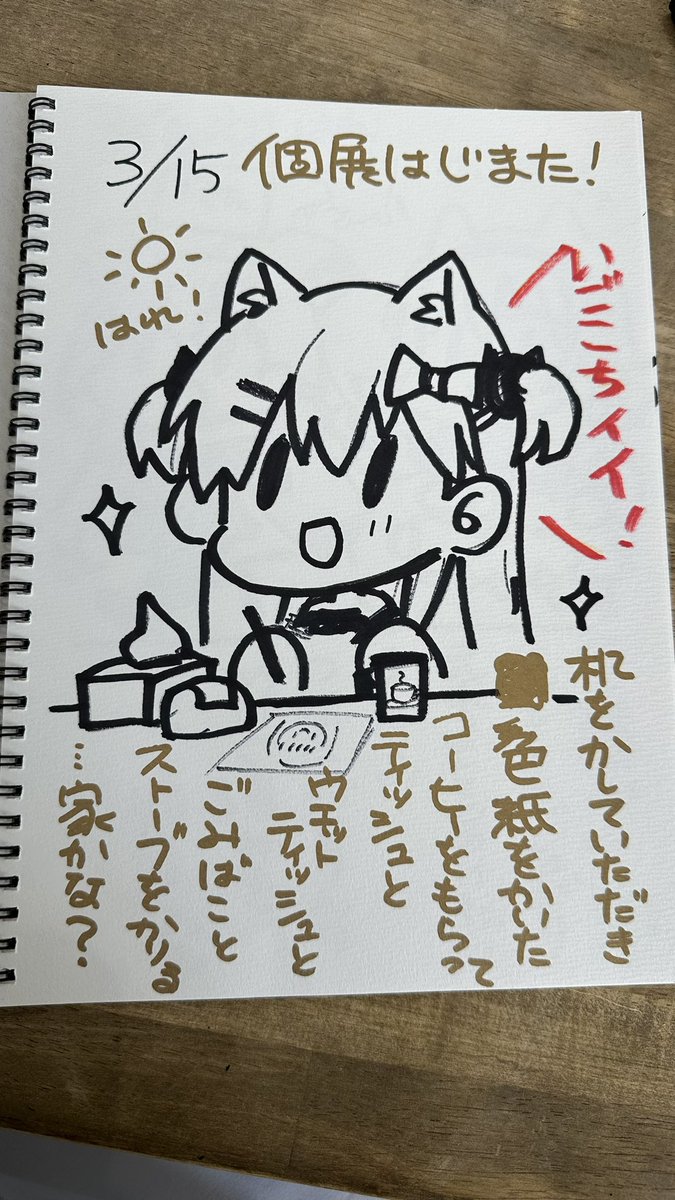 3/15 個展はじまた!
はれ!
いごこちイイ!
机をかしていただき
色紙をかいた
コーヒーをもらって
ティッシュと
ウエット
ティッシュと
ごみばこと
ストーブをかる
…家かな?